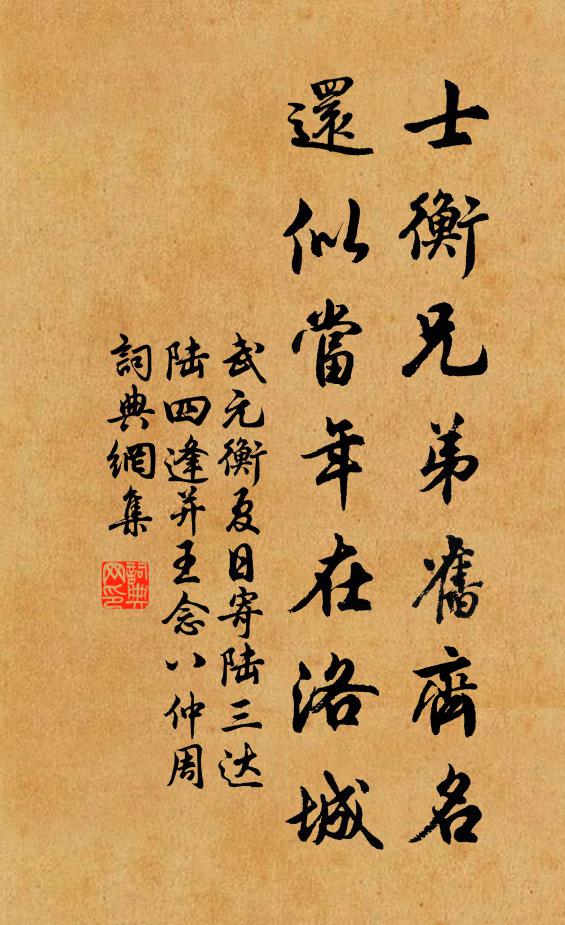 士衡兄弟舊齊名
還似當年在洛城
武元衡夏日寄陆三达
陆四逢并王念八仲周
詞典網集
詞典网印